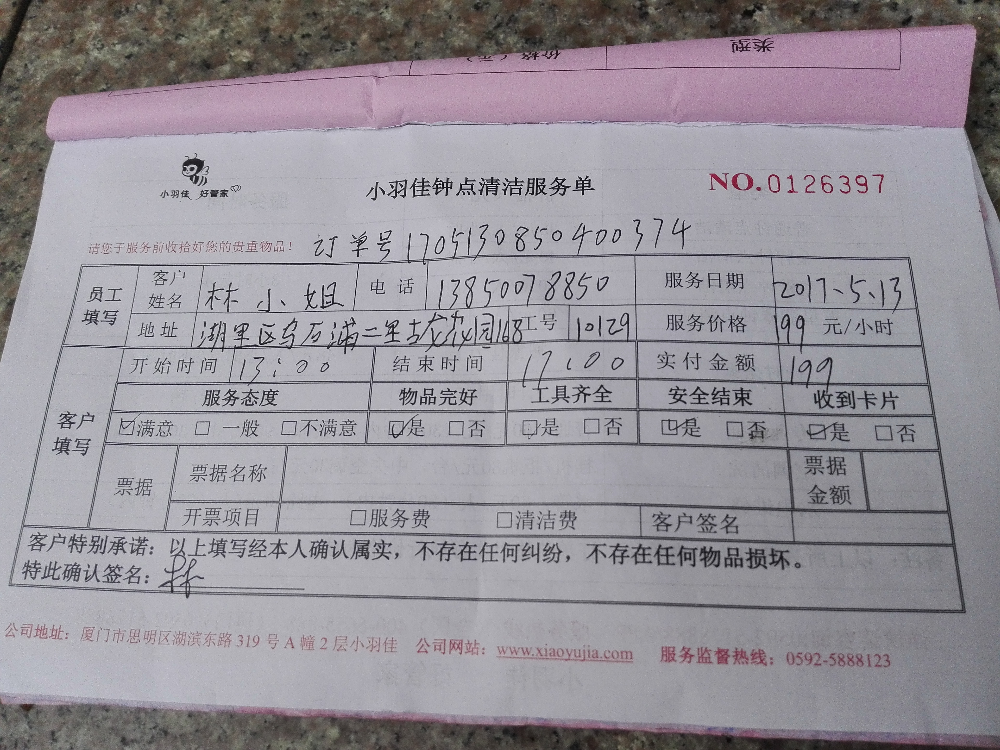 类型
价格（元）
小羽佳 好管家
小羽佳钟点清洁服务单
NO.0126397
请您于服务前收拾好您的贵重物品！ 订单号1705130850400374
员工填写 客户姓名 林小姐 电话 13850078850 服务日期 2017.5.13
地址 湖里区乌石浦二里古龙花园168 工号 10129 服务价格 199 元/小时
客户填写 开始时间 13:00 结束时间 17:00 实付金额 199
服务态度 物品完好 工具齐全 安全结束 收到卡片
☑满意 □一般 □不满意 ☑是 □否 ☑是 □否 ☑是 □否 ☑是 □否
票据 票据名称 票据金额
开票项目 □服务费 □清洁费 客户签名
客户特别承诺：以上填写经本人确认属实，不存在任何纠纷，不存在任何物品损坏。
特此确认签名：林
公司地址：厦门市思明区湖滨东路 319 号 A 幢 2 层小羽佳 公司网站：www.xiaoyujia.com 服务监督热线：0592-5888123